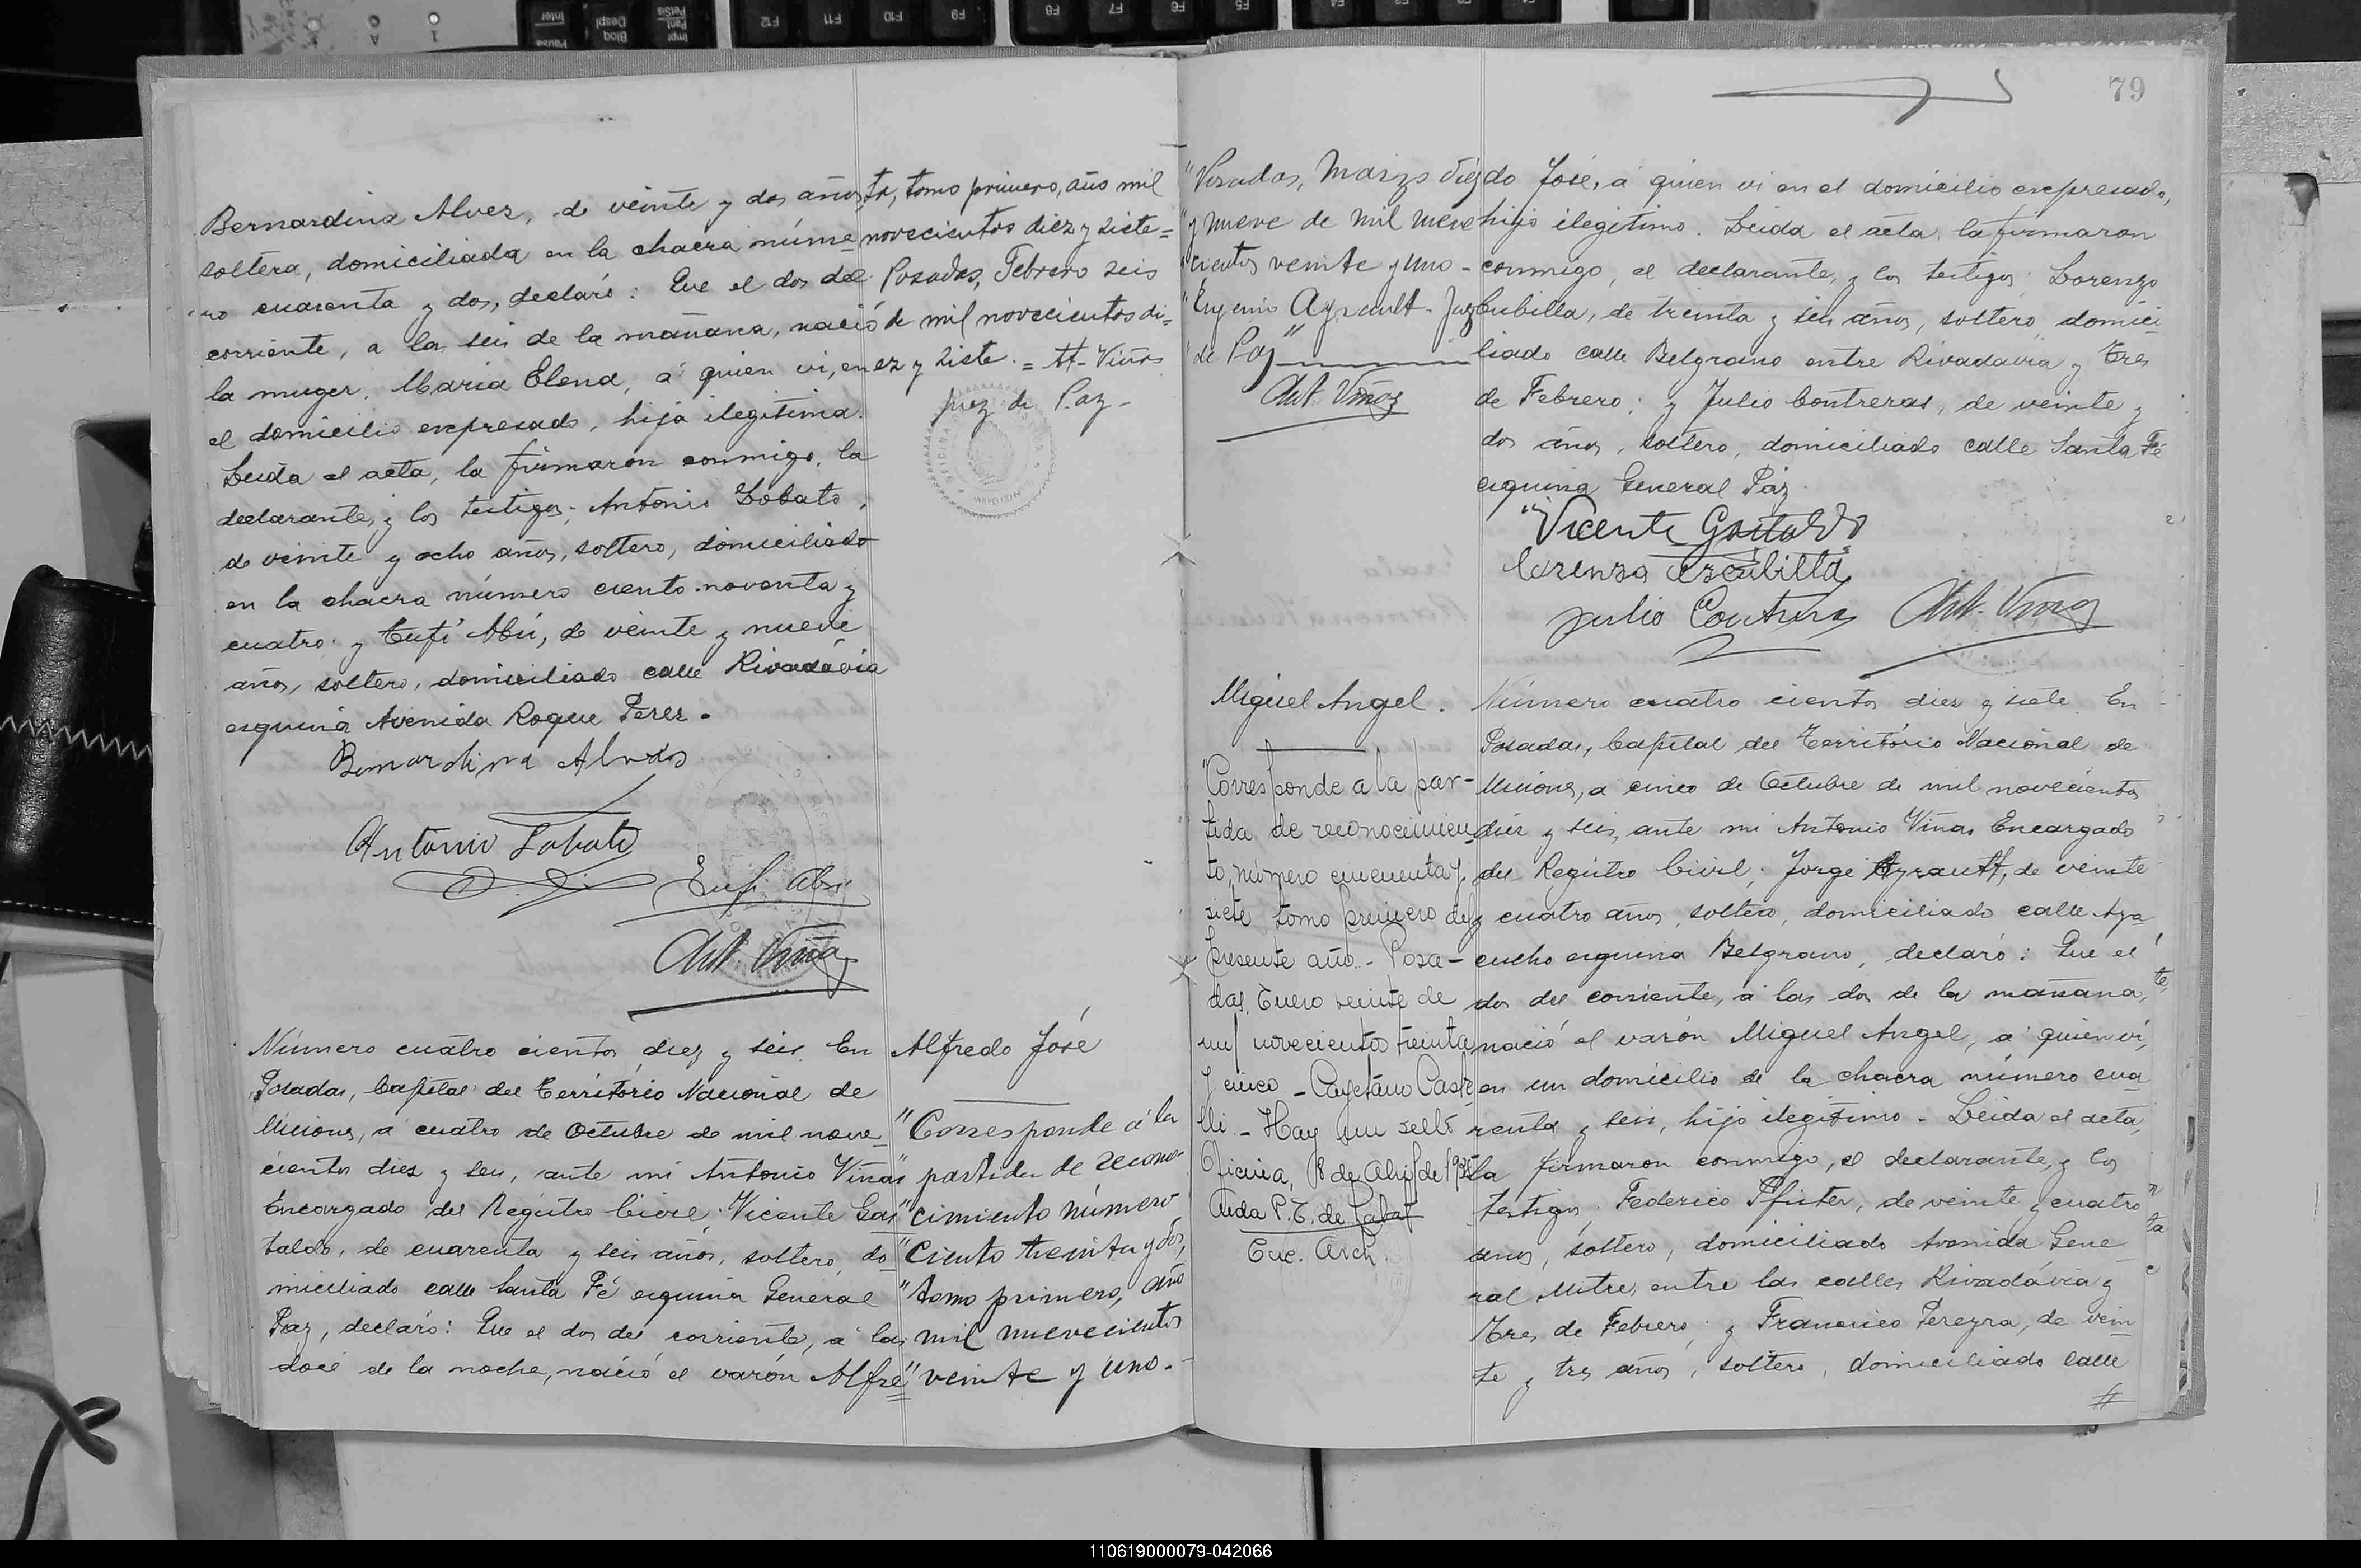 79
Bernardina Alvez, de veinte y dos años,
soltera, domiciliada en la chacra núme
ro cuarenta y dos, declaró: Que el dos del
corriente, a las seis de la mañana, nació
la muger, Maria Elena, a quien vi, en
el domicilio expresado, hija ilegitima.
Leida el acta, la firmaron conmigo, la
declarante, y los testigos; Antonio Lobato,
de veinte y ocho años, soltero, domiciliado
en la chacra número ciento noventa y
cuatro; y Eufi Abú, de veinte y nueve
años, soltero, domiciliado calle Rivadávia
esquina Avenida Roque Perez.
Bernardina Alves
Antonio Lobato
Eufi Abú
Ant. Viñas
to, tomo primero, año mil
novecientos diez y siete=
Posadas, Febrero seis
de mil novecientos di=
ez y siete.= A- Viñas
juez de Paz-
Número cuatro cientos diez y seis. En
Posadas, Capital del Território Nacional de
Misiones, a cuatro de Octubre de mil nove
cientos diez y seis, ante mi Antonio Viñas
Encargado del Registro Civil; Vicente Gas
taldo, de cuarenta y seis años, soltero, do
miciliado calle Santa Fé esquina General
Paz, declaró: Que el dos del corriente, a las
doce de la noche, nació el varón Alfre
Alfredo José
"Corresponde á la
"partida de recono-
"cimiento número
"Ciento treinta y dos,
"tomo primero, año
"mil nuevecientos
"veinte y uno.-
"Posadas, Marzo diez
"y nueve de mil nueve
"cientos veinte y uno-
"Eugenio Ayrault- Juez
"de Paz"
Ant. Viñas
do José, a quien vi en el domicilio expresado,
hijo ilegitimo. Leida el acta, la firmaron
conmigo, el declarante, y los testigos; Lorenzo
Cubilla, de treinta y seis años, soltero, domici
liado calle Belgrano entre Rivadavia y Tres
de Febrero; y Julio Contreras, de veinte y
dos años, soltero, domiciliado calle Santa Fé
esquina General Paz.
Vicente Gastaldo
Julio Contreras
Ant. Viñas
Miguel Angel.
"Corresponde a la par-
tida de reconocimien
to, número cincuenta y
siete, tomo primero del
presente año.- Posa-
das, Enero veinte de
mil novecientos treinta
y cinco.- Cayetano Caste
lli.- Hay un sello
Oficina, 18 de Abril de 1935
Aida P. T. de Labat
Enc. Arch.
Número cuatro cientos diez y siete. En
Posadas, Capital del Território Nacional de
Misiones, a cinco de Octubre de mil novecientos
diez y seis, ante mi Antonio Viñas Encargado
del Registro Civil; Jorge Ayrault, de veinte
y cuatro años, soltero, domiciliado calle Aya
cucho esquina Belgrano, declaró: Que el
dos del corriente, a las dos de la mañana,
nació el varón Miguel Angel, a quien vi,
en un domicilio de la chacra número cua
renta y seis, hijo ilegitimo. Leida el acta,
la firmaron conmigo, el declarante, y los
testigos; Federico Pfister, de veinte y cuatro
años, soltero, domiciliado Avenida Gene
ral Mitre, entre las calles Rivadávia y
Tres de Febrero; y Francisco Pereyra, de vein
te y tres años, soltero, domiciliado calle
110619000079-042066